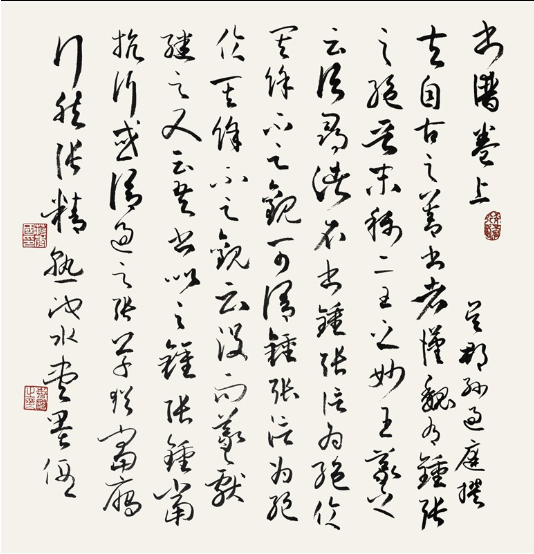 書譜卷上 吳郡孫過庭撰
夫自古之善書者漢魏有鍾張
之絕晉末稱二王之妙王羲之
云頃尋諸名書鍾張信為絕倫
其餘不足觀可謂鍾張信為絕
倫其餘不足觀云沒而羲獻
繼之又云吾書比之鍾張鍾當
抗行或謂過之張草猶當雁
行然張精熟池水盡墨假